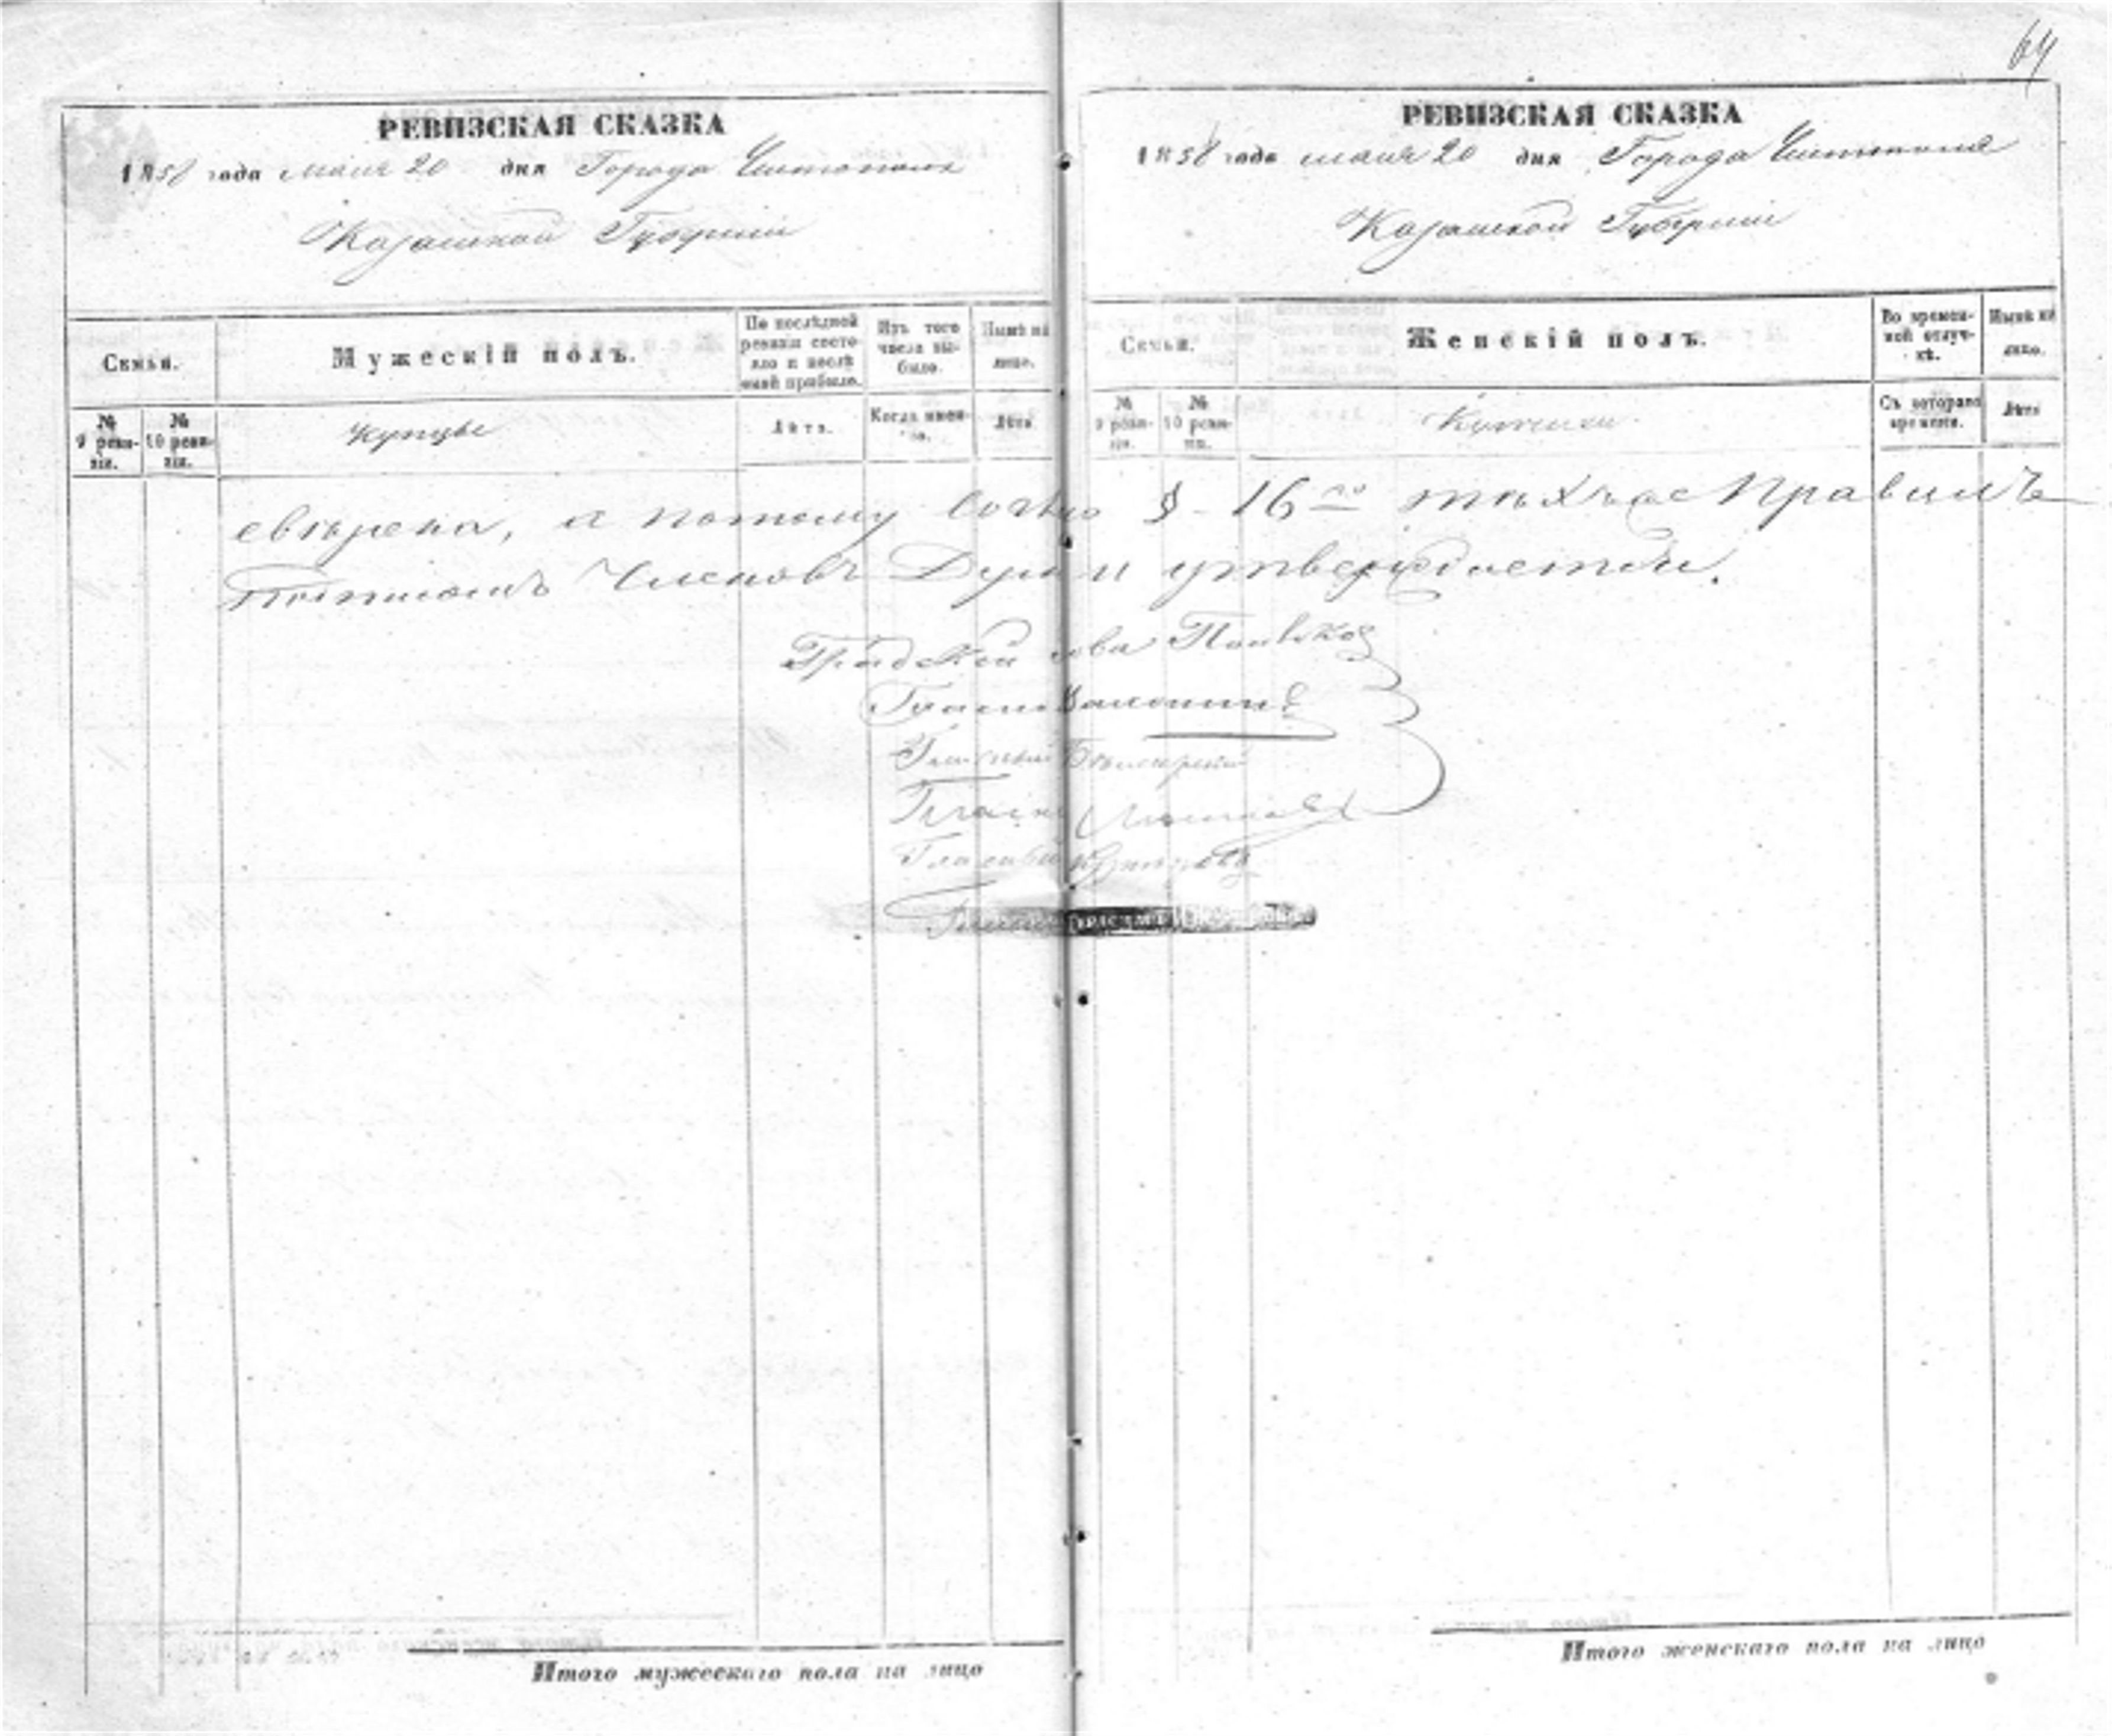 64
РЕВИЗСКАЯ СКАЗКА
1858 года маия 20 дня Города Чистополя
Казанской Губернiи
Семьи.
Мужескiй полъ.
По послѣдней ревизiи состояло и послѣ оной прибыло.
Изъ того числа выбыло.
Нынѣ на лицо.
№ 9 ревизiи.
№ 10 ревизiи.
Купцы
Лѣта.
Когда именно.
Лѣта
РЕВИЗСКАЯ СКАЗКА
1858 года маия 20 дня Города Чистополя
Казанской Губернiи
Семьи.
Женскiй полъ.
Во временной отлучкѣ.
Нынѣ на лицо.
№ 9 ревизiи.
№ 10 ревизiи.
Съ котораго времени.
Лѣта
свѣрена, а потому § 16го тѣхъ же Правилъ
Членовъ Думы утверждается.
Градской
Гласный
Гласный
Гласный
Итого мужескаго пола на лицо
Итого женскаго пола на лицо